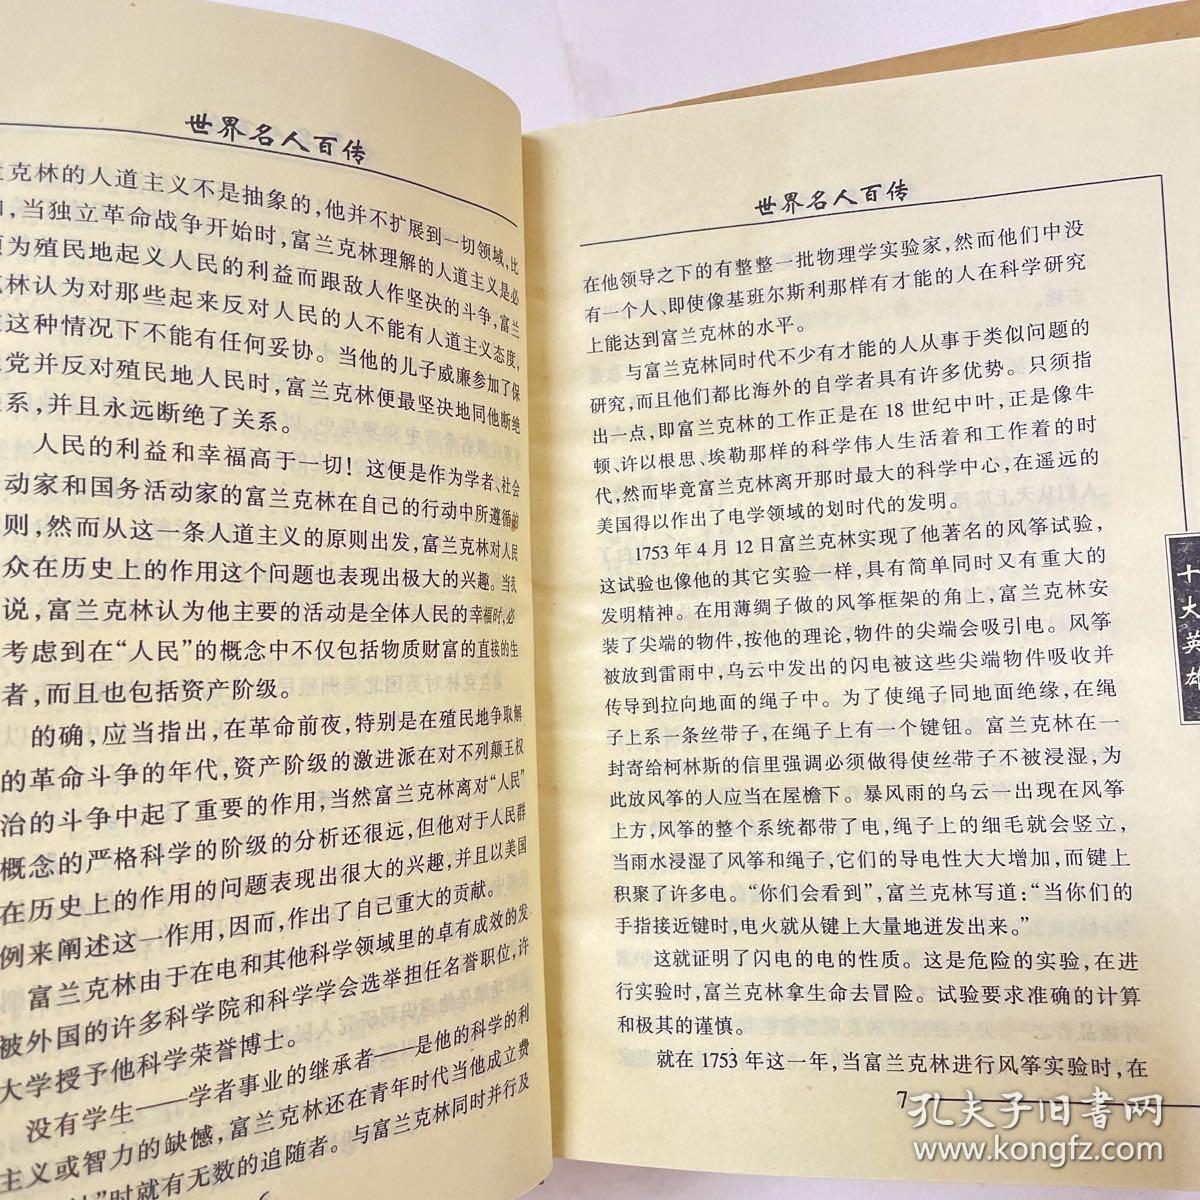 世界名人百传
克林的人道主义不是抽象的,他并不扩展到一切领域,比
,当独立革命战争开始时,富兰克林理解的人道主义是必
为殖民地起义人民的利益而跟敌人作坚决的斗争,富兰
林认为对那些起来反对人民的人不能有人道主义态度,
这种情况下不能有任何妥协。当他的儿子威廉参加了保
党并反对殖民地人民时,富兰克林便最坚决地同他断绝
系,并且永远断绝了关系。
人民的利益和幸福高于一切!这便是作为学者、社会
动家和国务活动家的富兰克林在自己的行动中所遵循的
则,然而从这一条人道主义的原则出发,富兰克林对人民
众在历史上的作用这个问题也表现出极大的兴趣。当我
说,富兰克林认为他主要的活动是全体人民的幸福时,必
考虑到在“人民”的概念中不仅包括物质财富的直接的生
者,而且也包括资产阶级。
的确,应当指出,在革命前夜,特别是在殖民地争取解
的革命斗争的年代,资产阶级的激进派在对不列颠王权
治的斗争中起了重要的作用,当然富兰克林离对“人民”
概念的严格科学的阶级的分析还很远,但他对于人民群
在历史上的作用的问题表现出很大的兴趣,并且以美国
例来阐述这一作用,因而,作出了自己重大的贡献。
富兰克林由于在电和其他科学领域里的卓有成效的发
被外国的许多科学院和科学学会选举担任名誉职位,许
大学授予他科学荣誉博士。
没有学生——学者事业的继承者——是他的科学的利
主义或智力的缺憾,富兰克林还在青年时代当他成立费
”时就有无数的追随者。与富兰克林同时并行及
世界名人百传
在他领导之下的有整整一批物理学实验家,然而他们中没
有一个人、即使像基班尔斯利那样有才能的人在科学研究
上能达到富兰克林的水平。
与富兰克林同时代不少有才能的人从事于类似问题的
研究,而且他们都比海外的自学者具有许多优势。只须指
出一点,即富兰克林的工作正是在18世纪中叶,正是像牛
顿、许以根思、埃勒那样的科学伟人生活着和工作着的时
代,然而毕竟富兰克林离开那时最大的科学中心,在遥远的
美国得以作出了电学领域的划时代的发明。
1753年4月12日富兰克林实现了他著名的风筝试验,
这试验也像他的其它实验一样,具有简单同时又有重大的
发明精神。在用薄绸子做的风筝框架的角上,富兰克林安
装了尖端的物件,按他的理论,物件的尖端会吸引电。风筝
被放到雷雨中,乌云中发出的闪电被这些尖端物件吸收并
传导到拉向地面的绳子中。为了使绳子同地面绝缘,在绳
子上系一条丝带子,在绳子上有一个键钮。富兰克林在一
封寄给柯林斯的信里强调必须做得使丝带子不被浸湿,为
此放风筝的人应当在屋檐下。暴风雨的乌云一出现在风筝
上方,风筝的整个系统都带了电,绳子上的细毛就会竖立,
当雨水浸湿了风筝和绳子,它们的导电性大大增加,而键上
积聚了许多电。“你们会看到”,富兰克林写道:“当你们的
手指接近键时,电火就从键上大量地迸发出来。”
这就证明了闪电的电的性质。这是危险的实验,在进
行实验时,富兰克林拿生命去冒险。试验要求准确的计算
和极其的谨慎。
就在1753年这一年,当富兰克林进行风筝实验时,在
7
十大英雄
孔夫子旧书网
www.kongfz.com